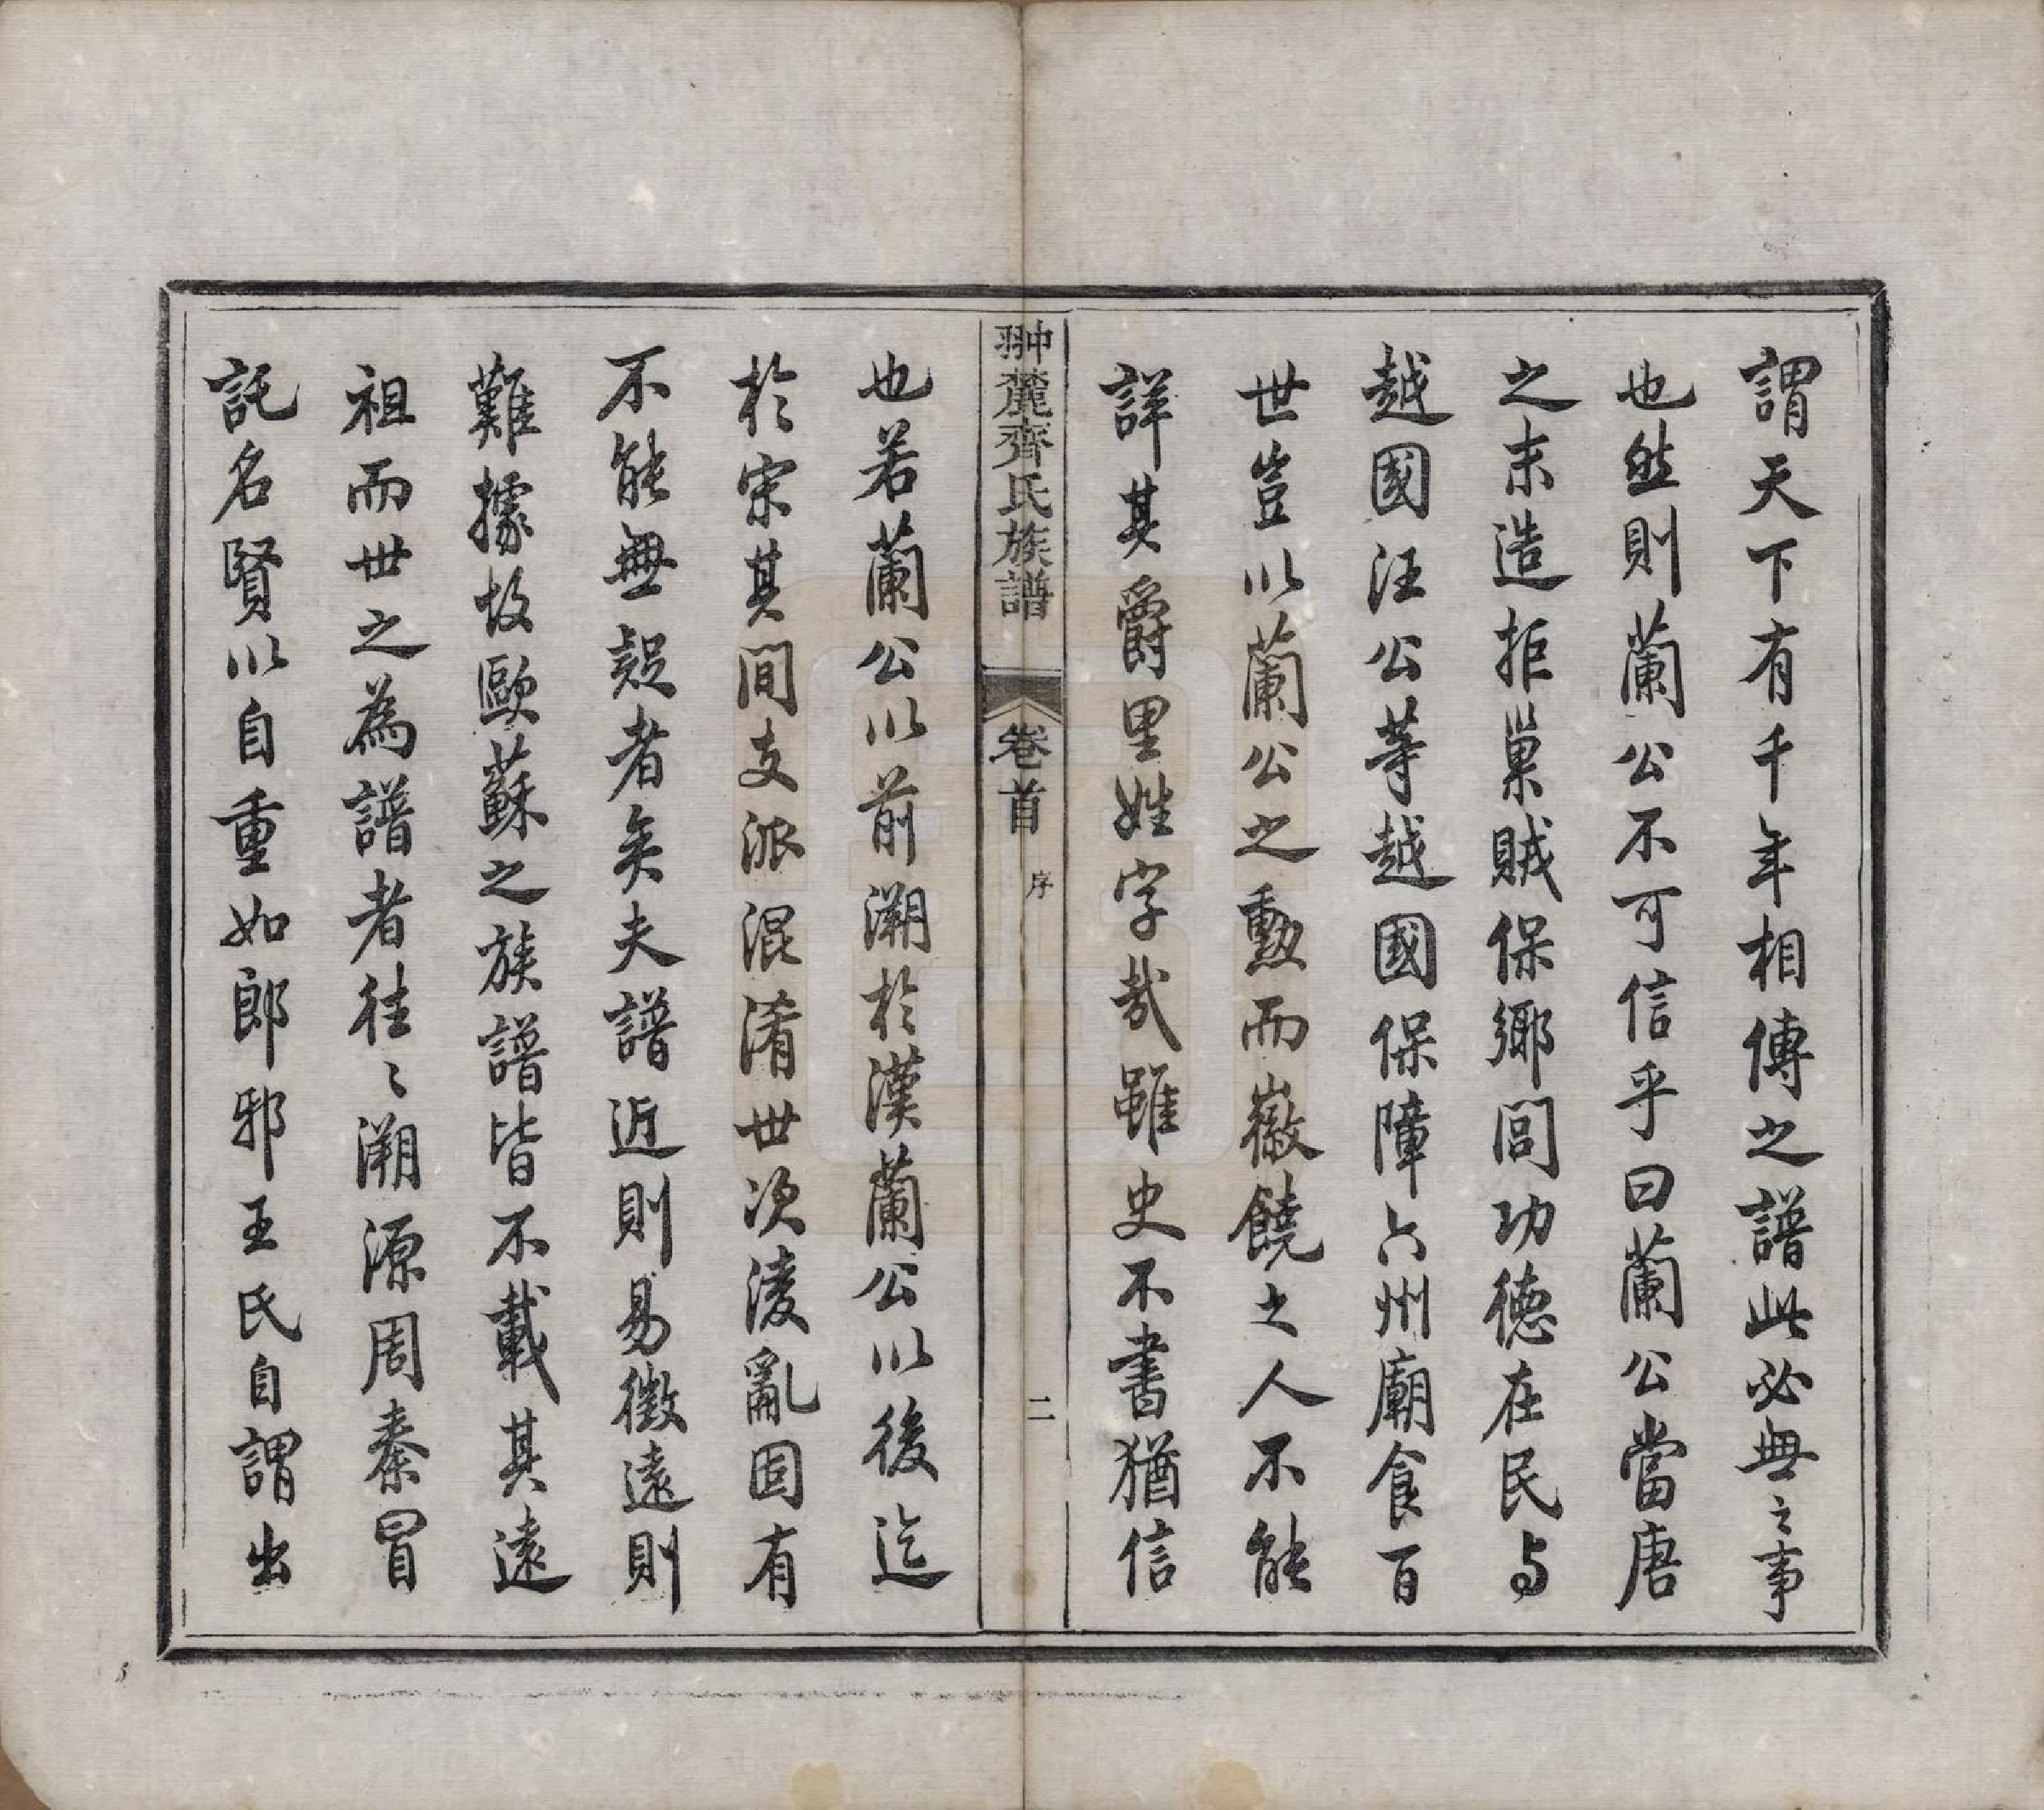 謂天下有千年相傳之譜此必無之事
也然則蘭公不可信乎曰蘭公當唐
之末造拒巢賊保鄉閭功德在民与
越國汪公等越國保障六州廟食百
世豈以蘭公之勲而徽饒之人不能
詳其爵里姓字哉雖史不書猶信
翀麓齊氏族譜 卷首 序 二
也若蘭公以前溯於漢蘭公以後迄
於宋其間支派混淆世次淩亂固有
不能無疑者矣夫譜近則易徵遠則
難據故歐蘇之族譜皆不載其遠
祖而世之為譜者往〻溯源周秦冒
託名賢以自重如郎邪王氏自謂出